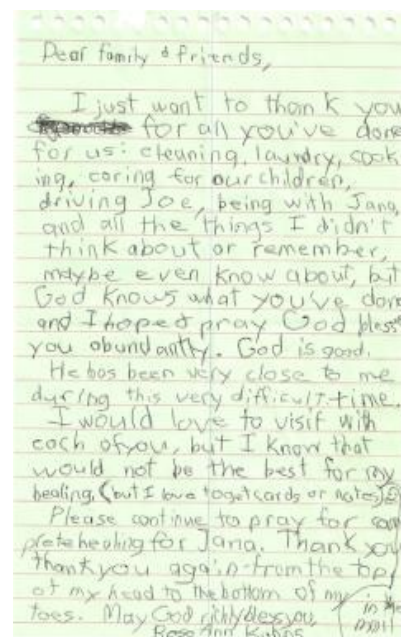 Dear family & friends,
I just want to thank you
for all you've done
for us: cleaning, laundry, cook
ing, caring for our children,
driving Joe, being with Jana,
and all the things I didn't
think about or remember,
maybe even know about, but
God knows what you've done
and I hope & pray God bless
you abundantly. God is good.
He has been very close to me
during this very difficult time.
I would love to visit with
each of you, but I know that
would not be the best for my
healing. (but I love to get cards or notes)
Please continue to pray for com
plete healing for Jana. Thank you
thank you again-from the top
of my head to the bottom of my
toes. May God richly bless you,
in the
mail
Rose Ann